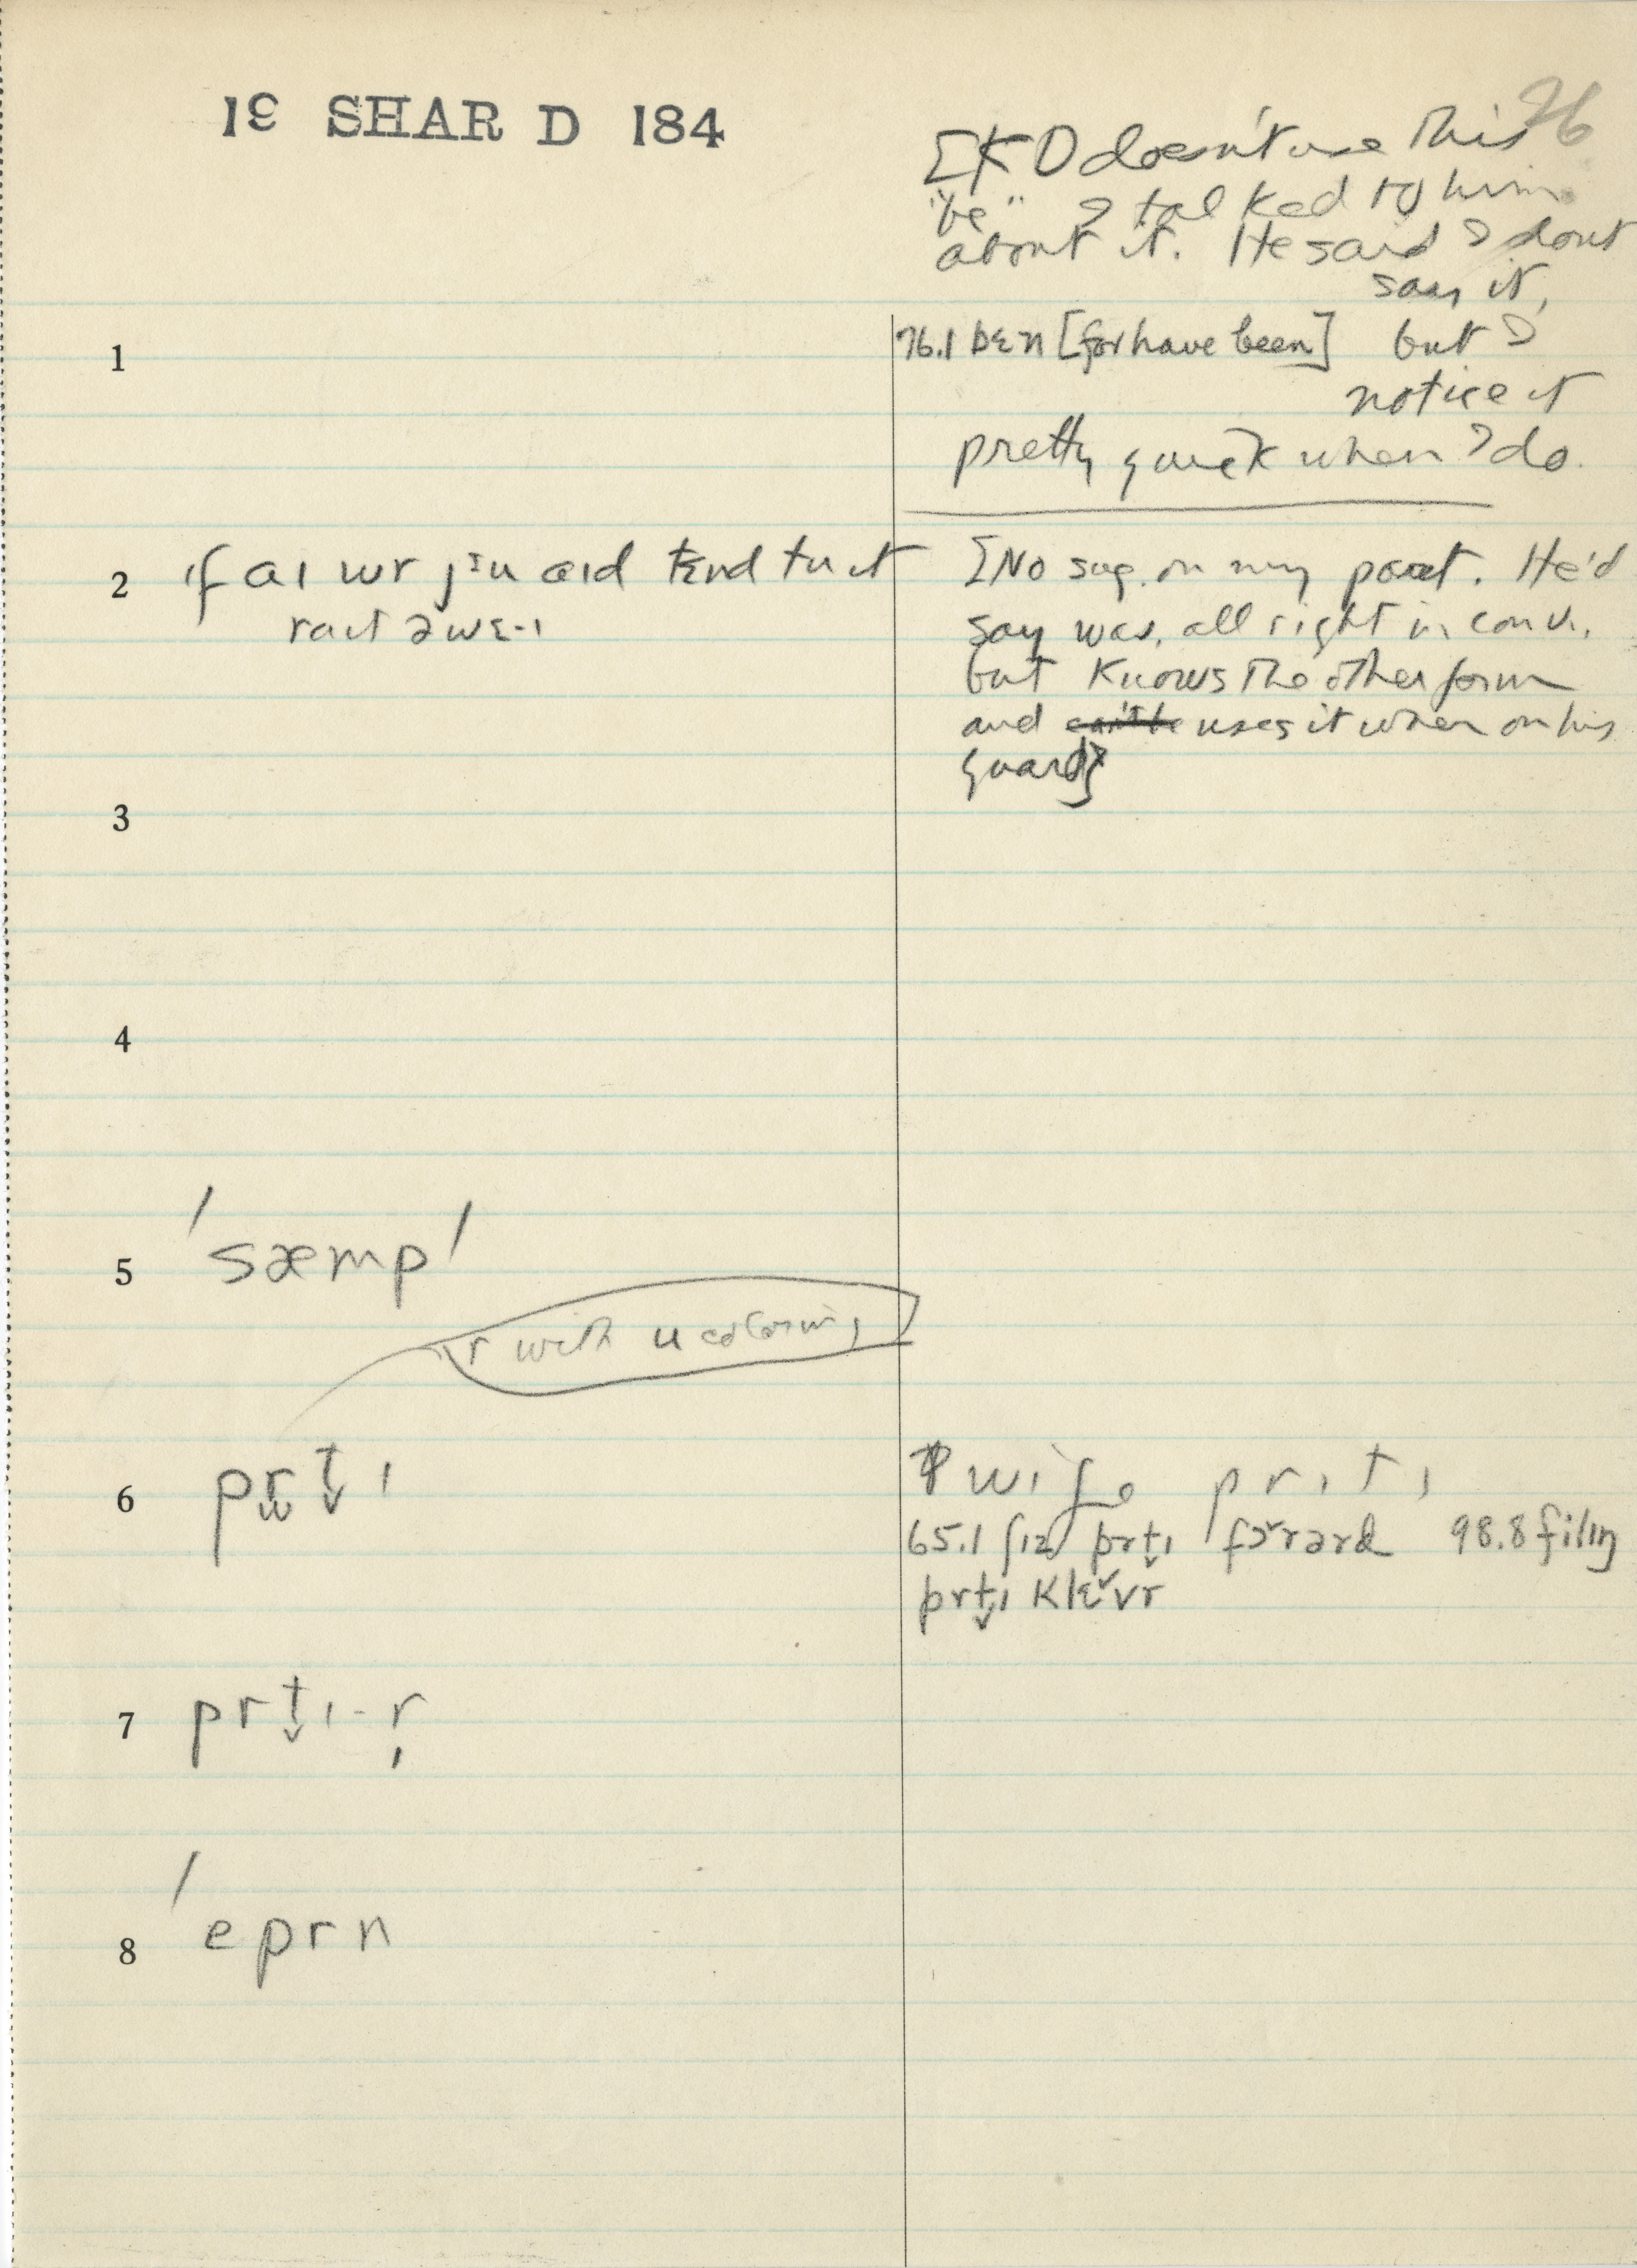 19 SHAR D 184
76
[KD doesn't use this
"be" I talked to him
about it. He said I dont
say it,
1
76.1 bɛn [for have been] but I
notice it
pretty quick when I do.
2 ɪf aɪ wr jɪu aɪd tɛnd tu ɪt
raɪt əwɛ-ɪ
[No sug. on my part. He'd
say was, all right in conv.,
but knows the other form
and uses it when on his
guard]
3
4
5 'sæmp'
r with u coloring
6 prt̬ɪ
wife prɪtɪ
65.1 ʃɪz prt̬ɪ fɔrərd 98.8 filɪŋ
prt̬ɪ klɛvr
7 prt̬ɪ-r
8 'eprn